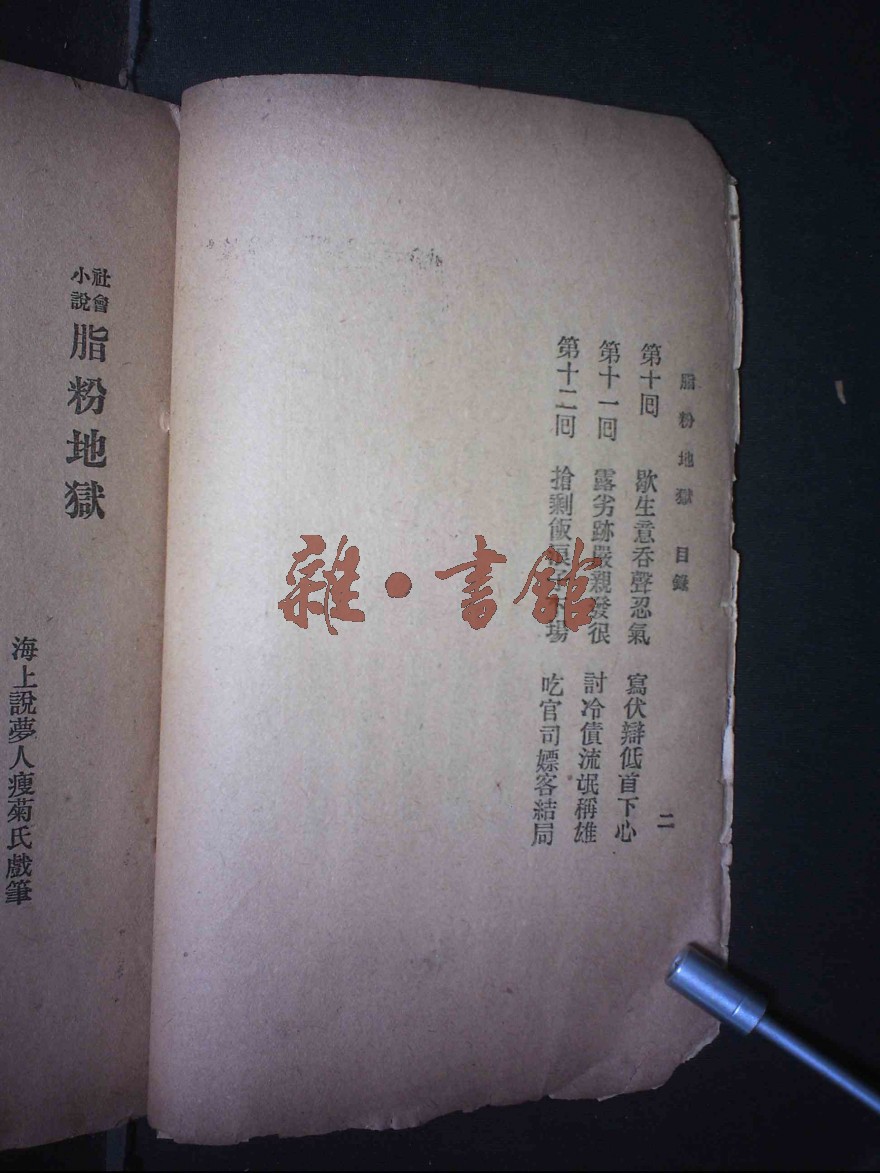 脂粉地獄 目錄
二
第十囘 歇生意吞聲忍氣 寫伏辯低首下心
第十一囘 露劣跡嚴親發很 討冷債流氓稱雄
第十二囘 搶剩飯 下場 吃官司嫖客結局
社會小說 脂粉地獄
海上說夢人瘦菊氏戲筆
雜·書館